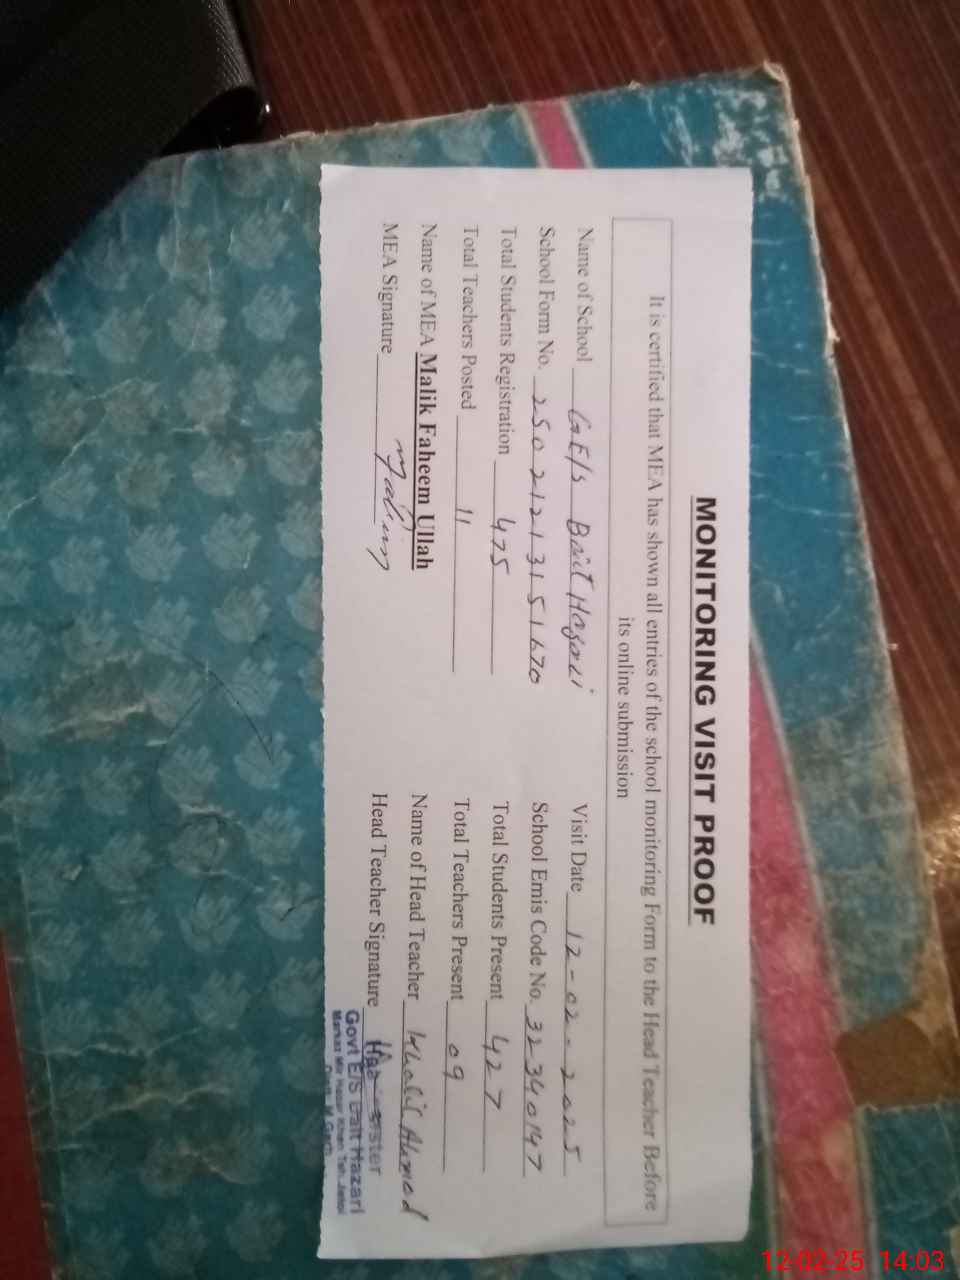 MONITORING VISIT PROOF
It is certified that MEA has shown all entries of the school monitoring Form to the Head Teacher Before
its online submission
Name of School GE/s Bait Hazari Visit Date 12-02-2025
School Form No. 25021213151670 School Emis Code No. 32340147
Total Students Registration 475 Total Students Present 427
Total Teachers Posted 11 Total Teachers Present 09
Name of MEA Malik Faheem Ullah Name of Head Teacher Khalil Ahmad
MEA Signature Head Teacher Signature
Govt E/S Bait Hazari
Markaz Mir Hazar Khan Teh. Jatoi
Distt. M.Garh
12-02-25 14:03